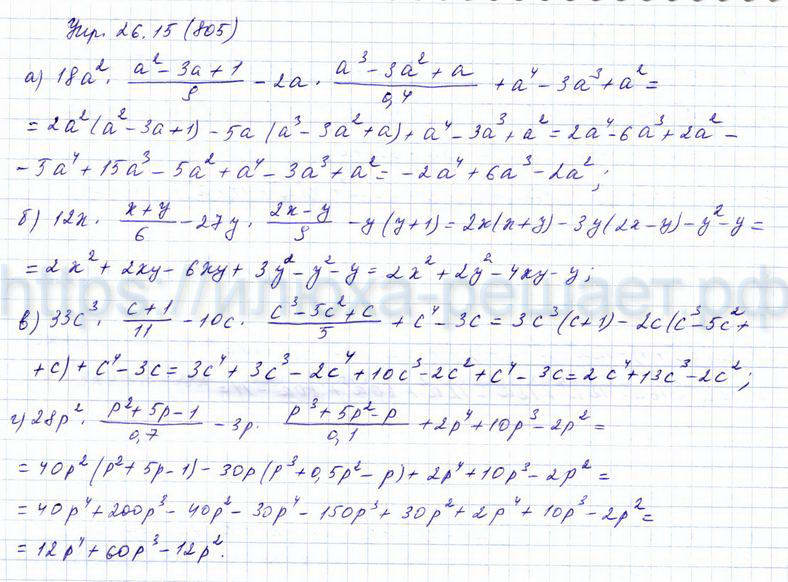 Упр. 26.15 (805)
а) 18a² · (a² - 3a + 1)/9 - 2a · (a³ - 3a² + a)/0,4 + a⁴ - 3a³ + a² =
= 2a²(a² - 3a + 1) - 5a (a³ - 3a² + a) + a⁴ - 3a³ + a² = 2a⁴ - 6a³ + 2a² -
- 5a⁴ + 15a³ - 5a² + a⁴ - 3a³ + a² = -2a⁴ + 6a³ - 2a²;
б) 12x · (x + y)/6 - 27y · (2x - y)/9 - y(y + 1) = 2x(x + y) - 3y(2x - y) - y² - y =
= 2x² + 2xy - 6xy + 3y² - y² - y = 2x² + 2y² - 4xy - y;
https://илюха-решает.рф
в) 33c³ · (c + 1)/11 - 10c · (c³ - 5c² + c)/5 + c⁴ - 3c = 3c³(c + 1) - 2c(c³ - 5c² +
+ c) + c⁴ - 3c = 3c⁴ + 3c³ - 2c⁴ + 10c³ - 2c² + c⁴ - 3c = 2c⁴ + 13c³ - 2c²;
г) 28p² · (p² + 5p - 1)/0,7 - 3p · (p³ + 5p² - p)/0,1 + 2p⁴ + 10p³ - 2p² =
= 40p² (p² + 5p - 1) - 30p (p³ + 0,5p² - p) + 2p⁴ + 10p³ - 2p² =
= 40p⁴ + 200p³ - 40p² - 30p⁴ - 150p³ + 30p² + 2p⁴ + 10p³ - 2p² =
= 12p⁴ + 60p³ - 12p².